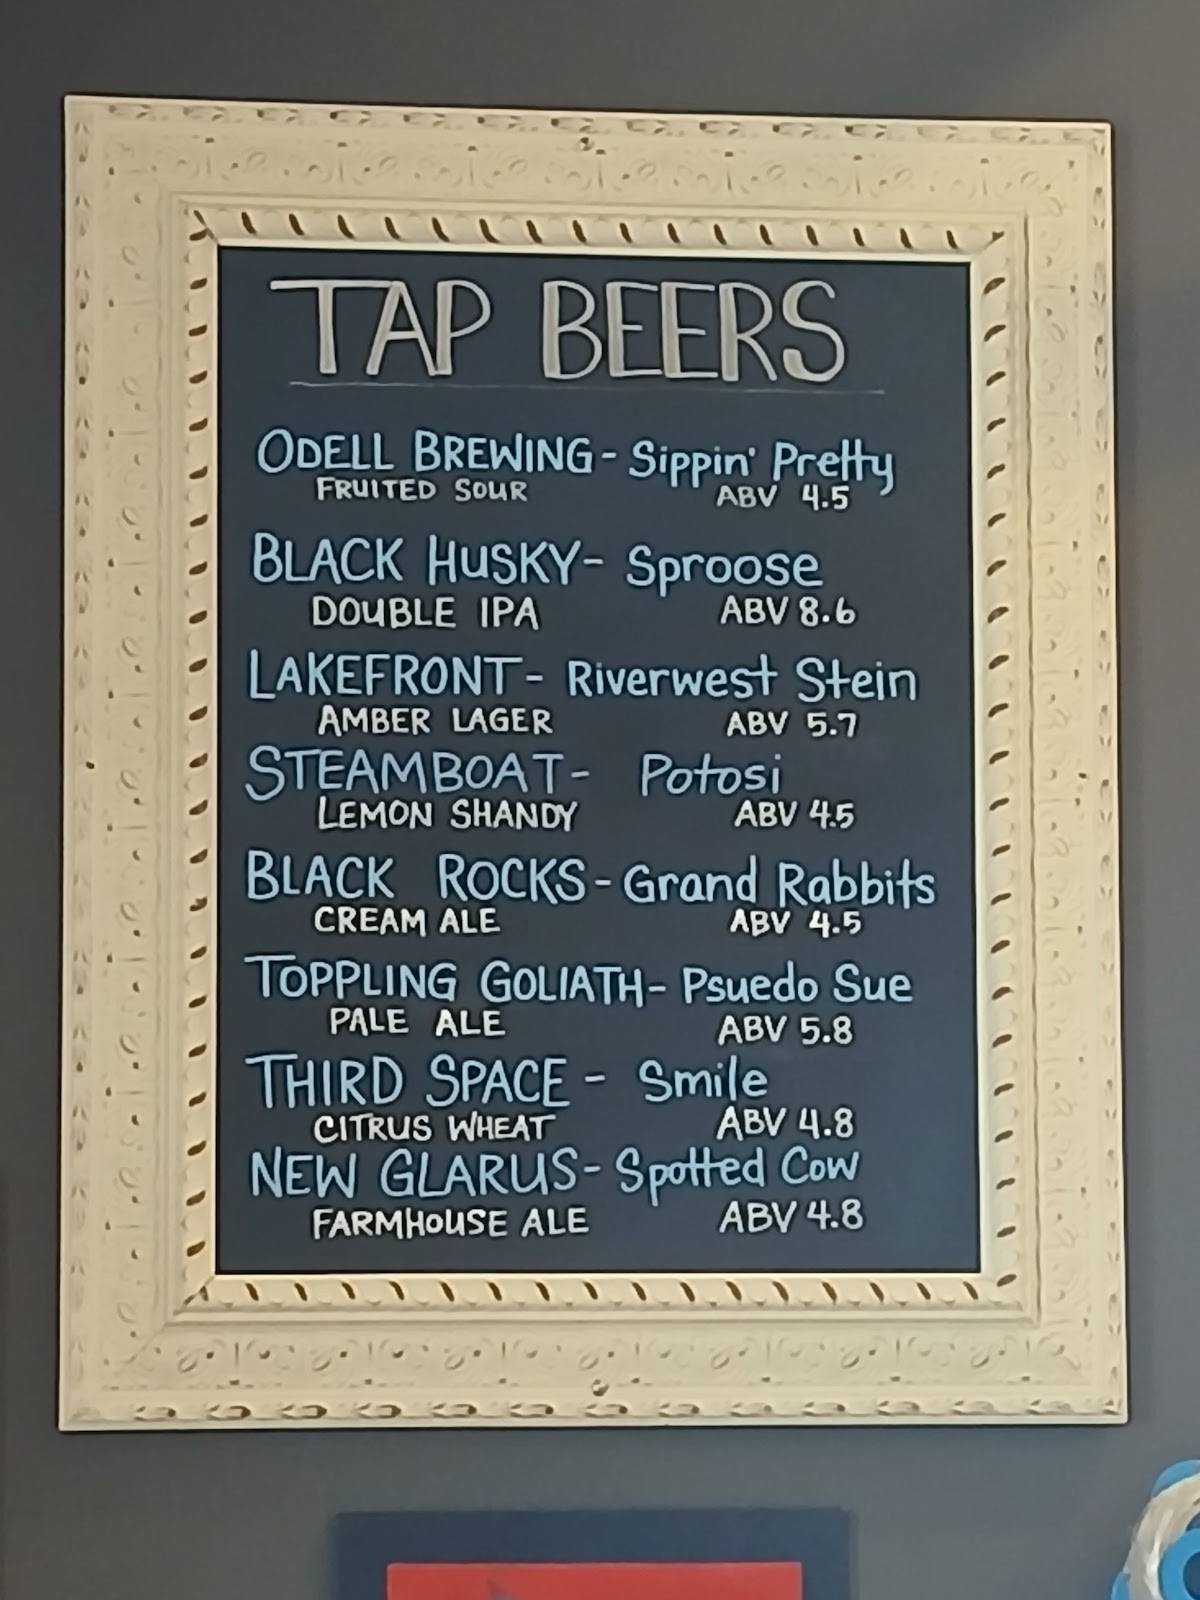 TAP BEERS
ODELL BREWING - Sippin' Pretty
FRUITED SOUR ABV 4.5
BLACK HUSKY - Sproose
DOUBLE IPA ABV 8.6
LAKEFRONT - Riverwest Stein
AMBER LAGER ABV 5.7
STEAMBOAT - Potosi
LEMON SHANDY ABV 4.5
BLACK ROCKS - Grand Rabbits
CREAM ALE ABV 4.5
TOPPLING GOLIATH - Psuedo Sue
PALE ALE ABV 5.8
THIRD SPACE - Smile
CITRUS WHEAT ABV 4.8
NEW GLARUS - Spotted Cow
FARMHOUSE ALE ABV 4.8